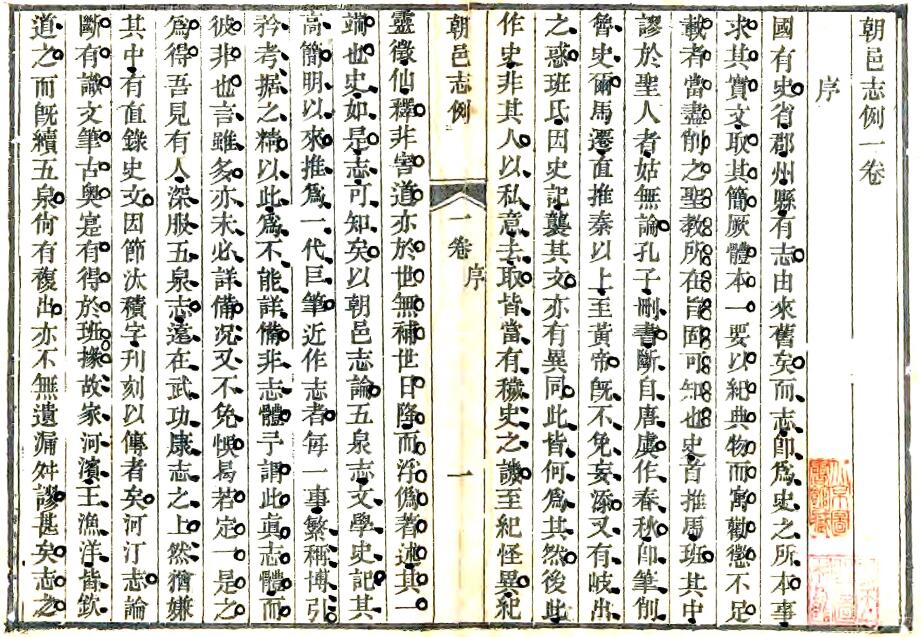 朝邑志例一卷
序
國有史省郡州縣有志由來舊矣而志卽爲史之所本事
求其實文取其簡厥體本一要以紀典物而寓勸懲不足
載者當盡削之聖敎所在旨固可知也史首推馬班其中
謬於聖人者姑無論孔子刪書斷自唐虞作春秋卽筆削
魯史爾馬遷直推秦以上至黃帝旣不免妄添又有岐出
之惑班氏因史記襲其文亦有異同此皆何爲其然後此
作史非其人以私意去取皆當有穢史之譏至紀怪異紀
朝邑志例
一卷
序
一
靈徵仙釋非害道亦於世無補世日降而浮僞著述其一
端也史如是志可知矣以朝邑志論五泉志文學史記其
高簡明以來推爲一代巨筆近作志者每一事繁稱博引
矜考據之精以此爲不能詳備非志體予謂此眞志體而
彼非也言雖多亦未必詳備况又不免悞曷若定一是之
爲得吾見有人深服五泉志遠在武功康志之上然猶嫌
其中有直錄史文因節汰積字刋刻以傳者矣河汀志論
斷有識文筆古奧寔有得於班掾故家河濱王漁洋皆欽
道之而旣續五泉尙有複出亦不無遺漏舛謬甚矣志之